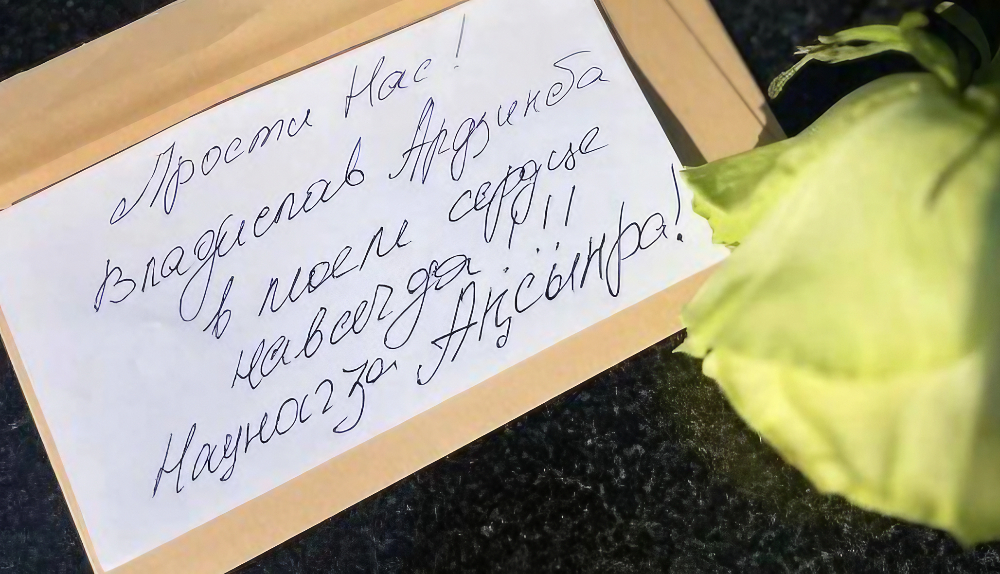 Прости Нас!
Владислав Ардзинба
в моем сердце
навсегда!!!
Наунагӡа Аԥсынра!